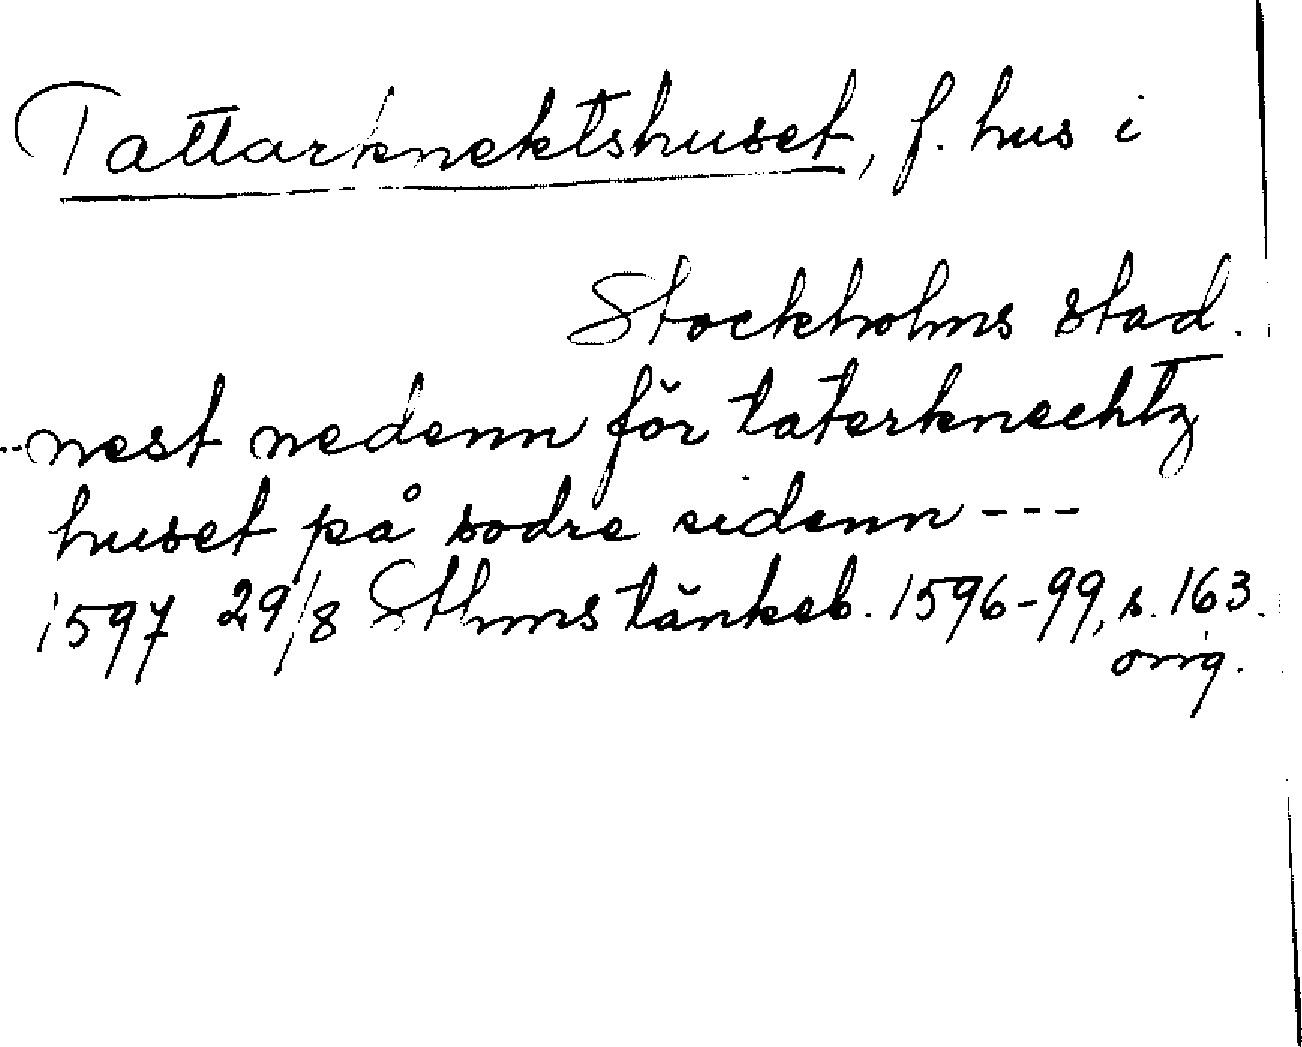 Tattarknektshuset, f. hus i
Stockholms stad.
--nest nedenn för taterknechtz
huset på sodre sidenn ---
1597 29/8 Sthms tänkeb. 1596-99, s. 163.
orig.